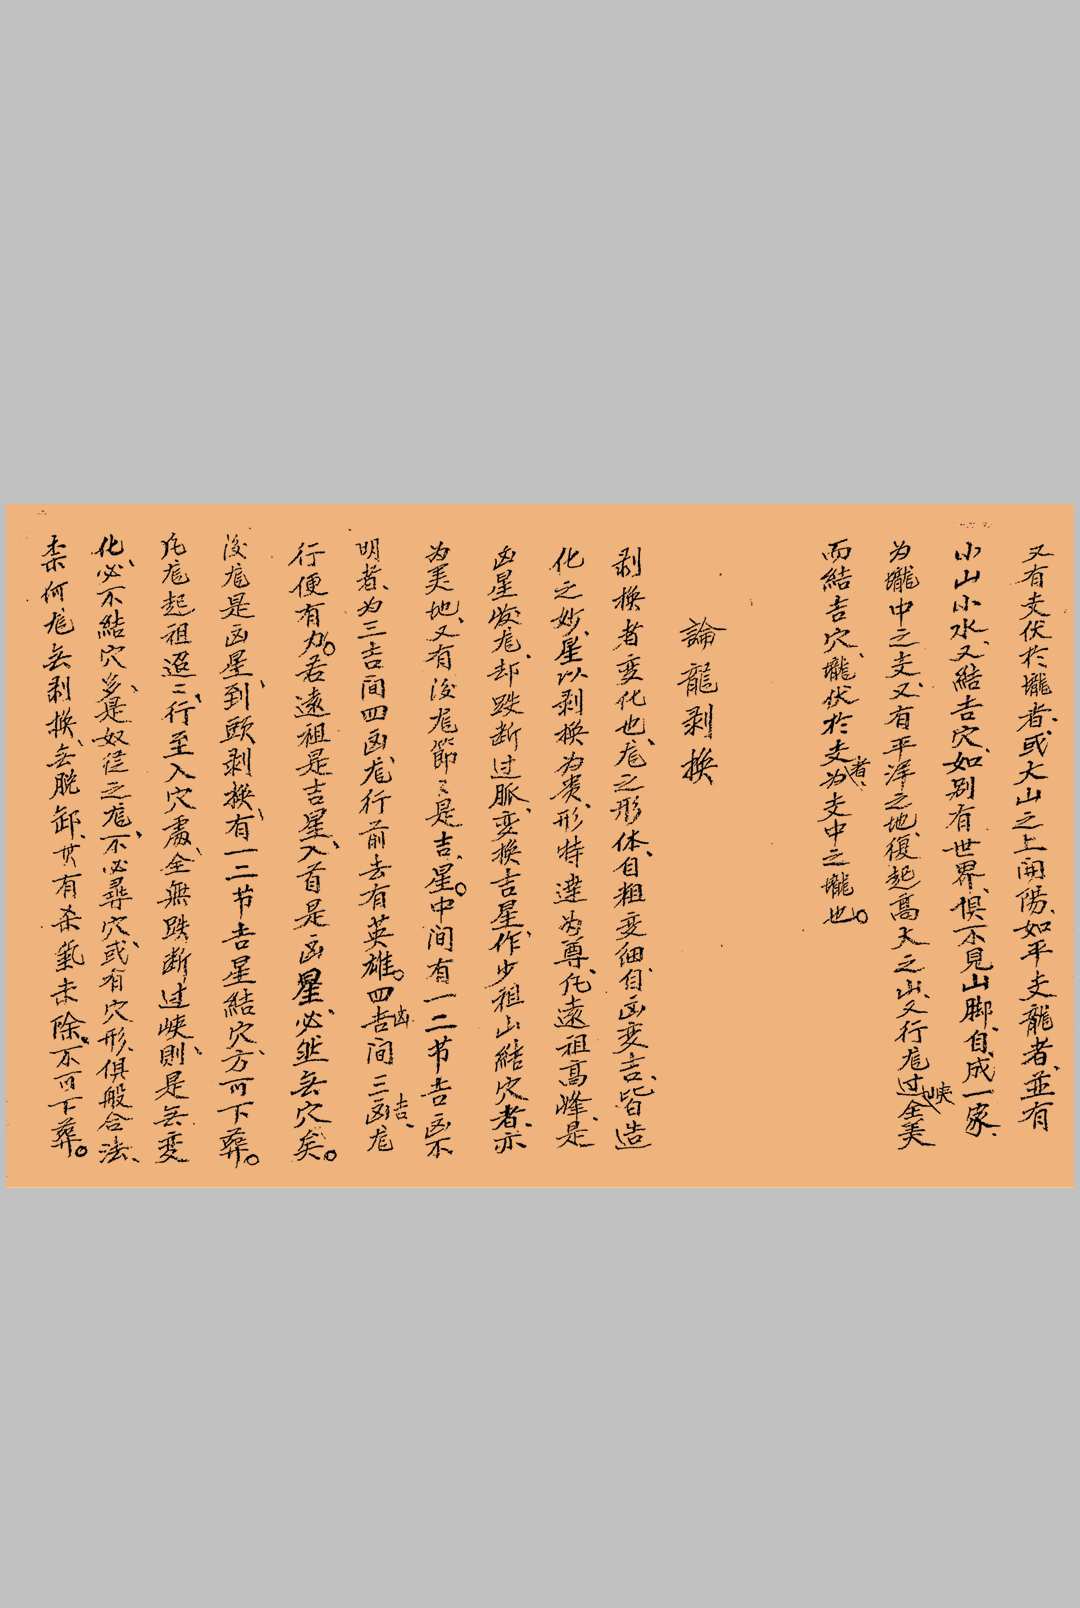 又有支伏於壠者、或大山之上開陽、如平支龍者、並有
小山小水、又結吉穴、如别有世界、俱不見山脚、自成一家、
为壠中之支、又有平洋之地、復起髙大之山、又行尨过峡全美
而結吉穴、壠伏於支者、为支中之壠也。
論龍剥換
剥換者变化也、尨之形体、自粗变細、自凶变吉、皆造
化之妙、星以剥換为贵、形特達为尊、尨遠祖高峰、是
凶星发尨、却跌断过脈、变換吉星、作少祖山結穴者、亦
为美地、又有後尨節々是吉、星。中间有一二节吉凶不
明者、为三吉间四凶、尨行前去有英雄。四凶吉间三吉凶、尨
行便有力。若遠祖是吉星、入首是凶星、必然无穴矣。
後尨是凶星、到頭剥換、有一二节吉星結穴、方可下葬。
尨起祖迢々、行至入穴處、全無跌断过峡、則是无变
化、必不結穴、多是奴從之尨、不必尋穴、或有穴形、俱般合法、
柰何尨无剥換、无脱卸、其有杀氣未除、不可下葬。